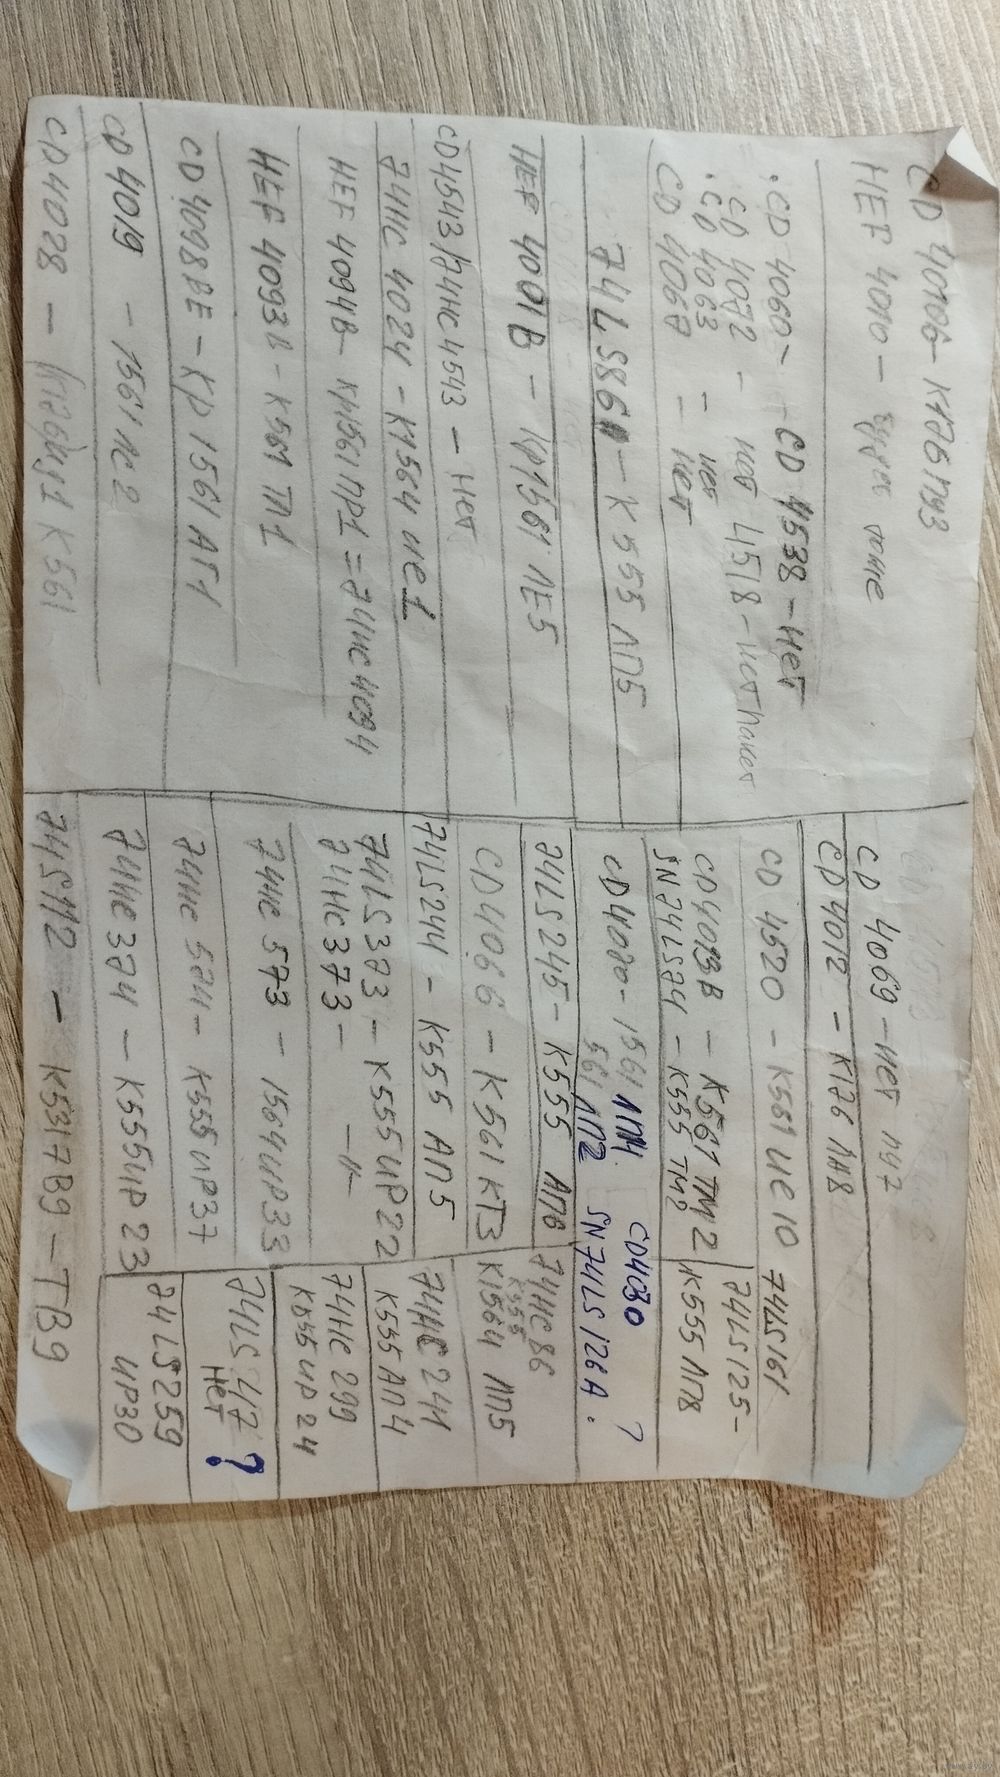 CD 40106 - К176ПУ3
HEF 4010 - тоже
• CD 4060 - CD 4538 - нет
• CD 4072 - нет 4518 - нет
• CD 4063 = нет
CD 4067 - нет
74LS86 - К555 ЛП5
HEF 4001B - Кр1561 ЛЕ5
CD4543/74HC4543 - нет
74HC 4024 - К1564 ие1
HEF 4094B - кр1561 ПР1 = 74нс 4094
HEF 4093B - К561 ТЛ1
CD 4098BE - Кр 1561 АГ1
CD 4019 - 1561 лс2
CD4028 - К561
CD 4069 - нет
CD 4012 - К176 ЛА8
CD 4520 - К561 ИЕ 10
74LS161
CD4013B - К561 ТМ 2
SN74LS74 - К555 ТМ2
74LS125 -
К555 ЛП8
CD4030
CD 4030 - 1561 ЛП14
561 ЛП2
SN74LS126A. ?
74LS245 - К555 АП6
74HC86
К555
К1564 ЛП5
CD4066 - К561 КТ3
74LS244 - К555 АП5
74HC 241
К555 АП4
74LS373 - К555ИР22
74HC373 - -"-
74HC 299
К555 ИР 24
74нс 573 - 1564ИР33
74LS 47 ?
нет
74нс 574 - К555 ИР37
74нс374 - К555ИР 23
74LS259
ИР30
74S112 - К531ТВ9 - ТВ9